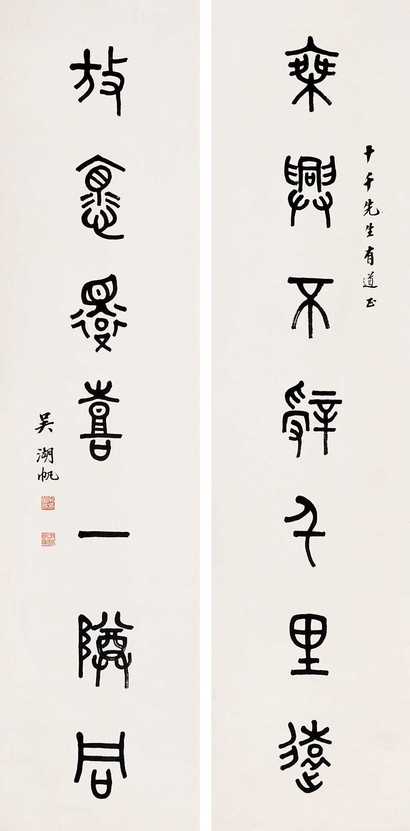 乘興不辭千里遠
千先生有道正
放懷還喜一尊同
吳湖帆